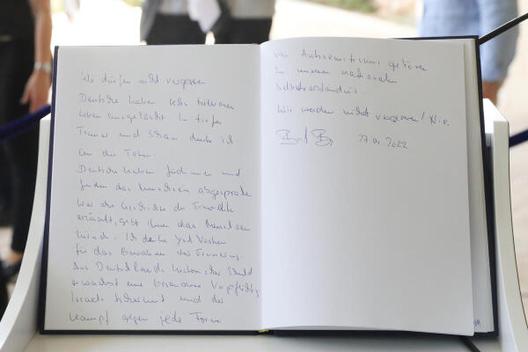 Wir dürfen nicht vergessen.
Deutsche haben sechs Millionen
Leben ausgelöscht. In tiefer
Trauer und Scham denke ich
an die Toten.
Deutsche haben Jüdinnen und
Juden das Menschsein abgesprochen
Wer die Geschichte der Ermordeten
erzählt, gibt ihnen das Menschsein
zurück. Ich danke Yad Vashem
für das Bewahren der Erinnerung.
Aus Deutschlands historischer Schuld
erwächst eine besondere Verpflichtung
Israels Sicherheit und der
Kampf gegen jede Form
von Antisemitismus gehören
zu unserem nationalen
Selbstverständnis.
Wir werden nicht vergessen! Nie.
27.04.2022